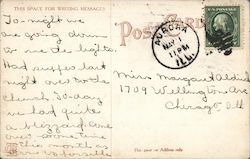 THIS SPACE FOR WRITING MESSAGES
POST CARD
To-night we
are going down
to see the lights.
Had supper last
night over to the
church. To-day
we had quite
a blizzard.
this month as
AURORA
MAY 1
11 PM
ILL.
Miss Margaret Aldrich
1709 Wellington Ave
Chicago, Ill
For name or Address only